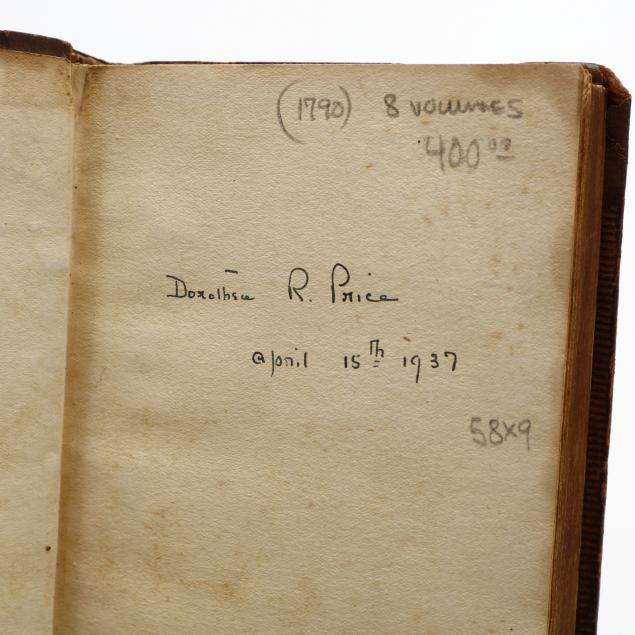 (1790) 8 VOLUMES
400.00
Dorothea R. Price
April 15th 1937
58x9